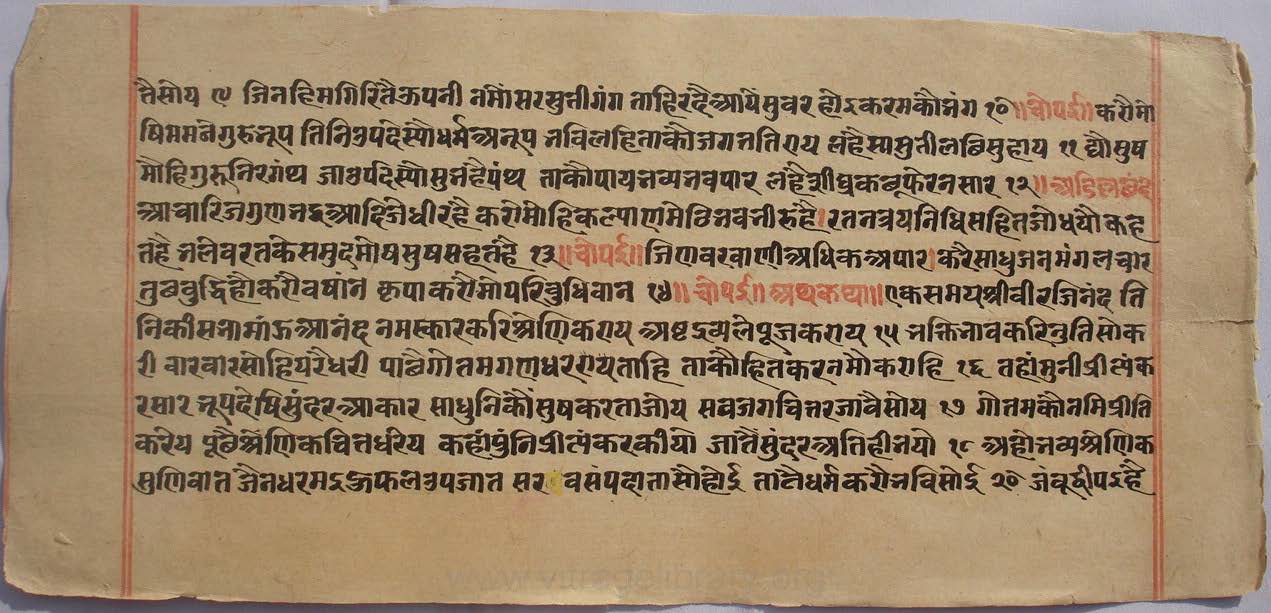 तैसोय ९ जिनहिमगिरितैऊपनी नमोसरसुतीगंग ताहिरदैआयेसुवर होइकरमकौभंग १० ॥चोपई॥ करौमो
षिममनेगुरुनूप तिनिउपदेस्यौधर्मअनूप भविलहिताकौजगभतिराय लहैस्यासुतीलबिसुहाय ११ द्यौसुष
मौहिगुरुनिरगंथ जाउपदेस्यौसुभहैपंथ ताकौपायभव्यभवपार लहैशीघ्रकबूफेरनसार १२ ॥अडिलछंद
आचारिजगुणनइआदिजेधीरहै करोमोहिकल्याणमेठिभवनीरुहै।रतनत्रयनिधिसहितजोधयौकह
तहै भलेवरतकेसमुदमोयसुषसहतहै १३॥चोपई॥ जिणवरवाणीअधिकअपार।करैसाधुजनमंगलचार
तुछबुद्धिहौकरौवषांन कृपाकरौमोपरिबुधिवान १४॥ चोपई॥ अथकथा॥ एकसमयश्रीवीरजिनंद ति
निकीसभामांऊआनंद नमस्कारकरिश्रेणिकराय अष्टद्रव्यलेपूजकराय १५ भक्तिभावकरिथुतिसोक
री वारवारसोहियरैधरी पाछैगोतमगणधररायताहि ताकौहितकरनमौकराहि १६ तहांमुनीप्रीत्यंक
रसार भूपदेषिसुंदरआकार साधुनिकौंसुषकरताजोय सवजगचित्तरजावैसोय १७ गोतमकौनमिप्रीति
करेय पूछैश्रेणिकचित्तधरेय कहांपुंनिप्रीत्यंकरकीयो जातैसुंदरअतिहीभयो १८ अहोभव्यश्रेणिक
सुणिवात जैनधरमइऊफलउपजात सरवसंपदातासौहोई तातैधर्मकरौभविसोई २० जंबूद्वीपइहै